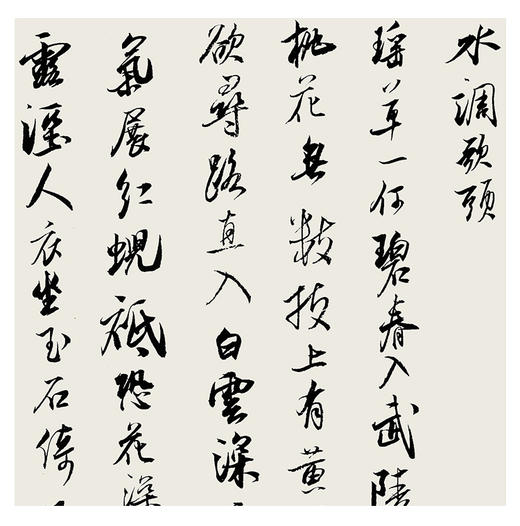 水調歌頭
瑶草一何碧春入武陵
桃花無數枝上有黃
欲尋路直入白雲深
氣展紅蜺祗恐花深
露溼人衣坐玉石倚